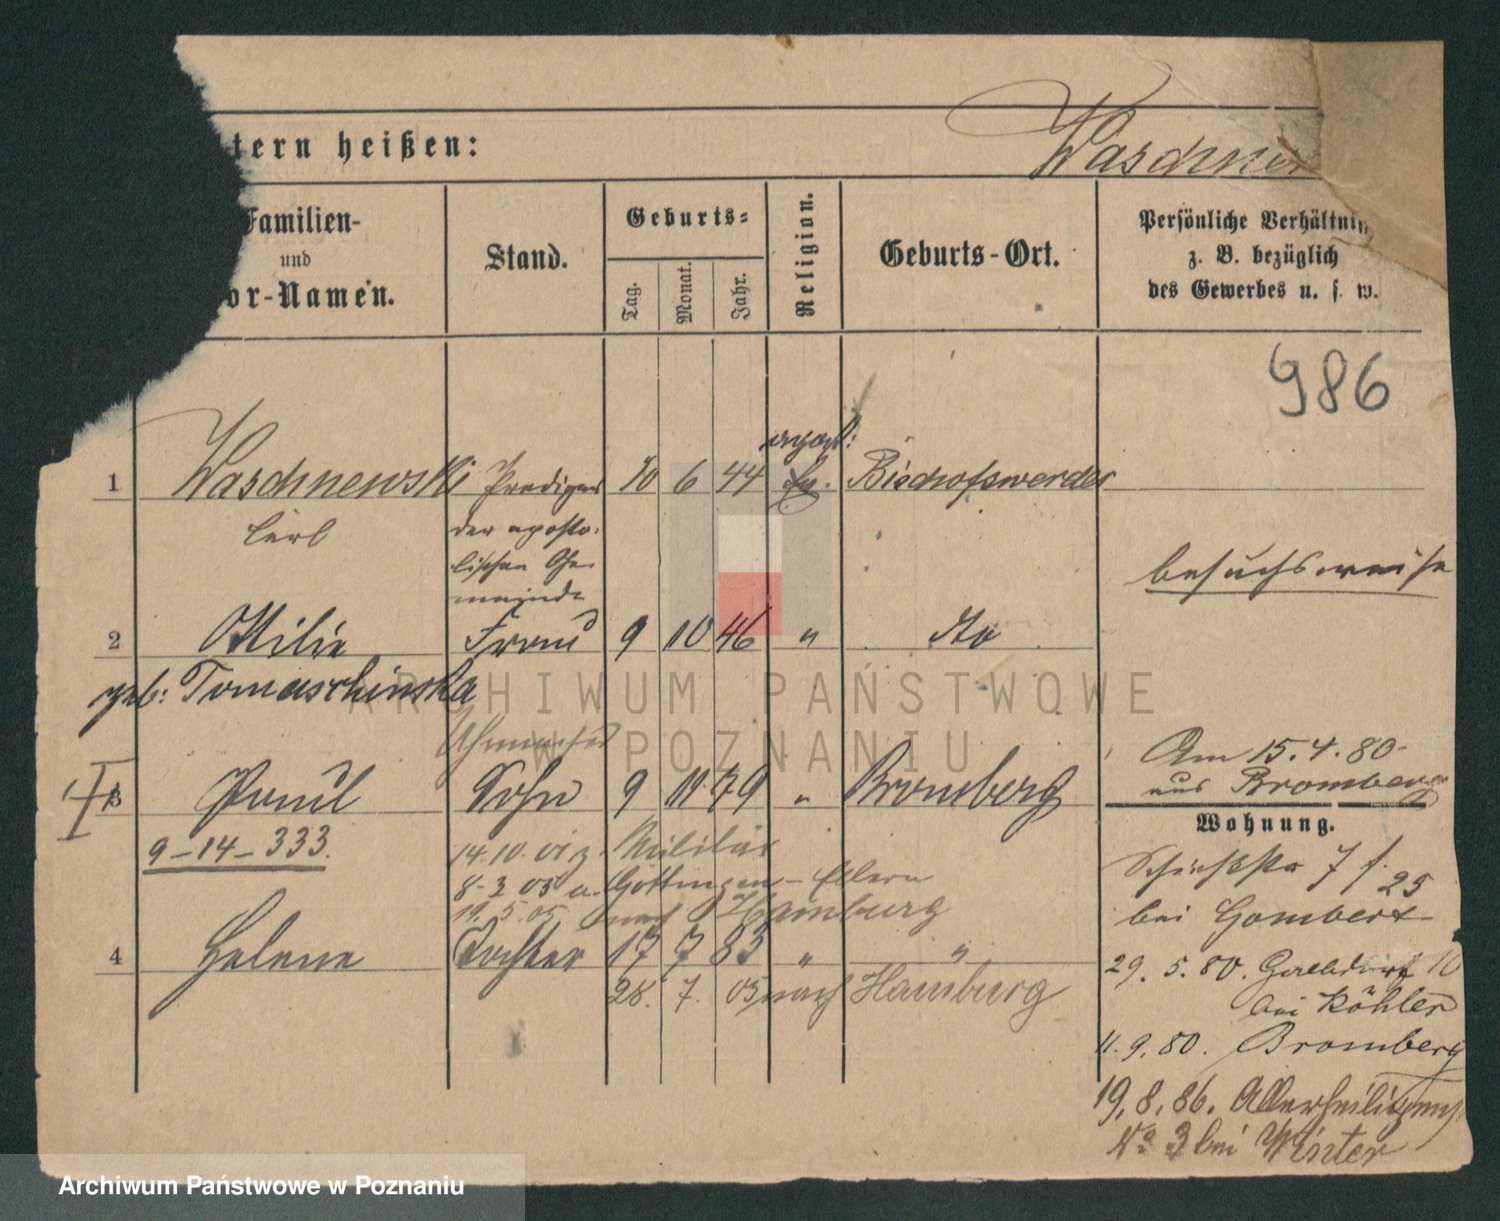 Waschnew
tern heißen:
Familien-
und
or-Namen.
Stand.
Geburts-
Tag.
Monat.
Jahr.
Religion.
Geburts-Ort.
Persönliche Verhältnin
z. B. bezüglich
des Gewerbes u. s. w.
986
apost:
1 Waschnewski Prediger 10 6 44 Ev. Bischofswerder
Carl
der aposto-
lischen Ge-
meinde
besuchsweise
2 Otilie Frau 9 10 46 " dto
geb: Tomaschinska
Uhrmacher
3 Paul Sohn 9 11 79 " Bromberg
Am 15.4.80
aus Bromberg
Wohnung.
9-14-333.
14.10. 01 z. Militär
8-3 05 u. Göttingen - Eltern
19.5.05 nach Hamburg
4 Helene Tochter 17 7 83 " "
28. 7. 05 nach Hamburg
Schießstr 7 f. 25
bei Gombert
29. 5. 80. 10
bei Köhler
11. 9. 80. Bromberg
19. 8. 86. Allerheiligenst
No 3 bei Winter
ARCHIWUM PAŃSTWOWE
W POZNANIU
Archiwum Państwowe w Poznaniu